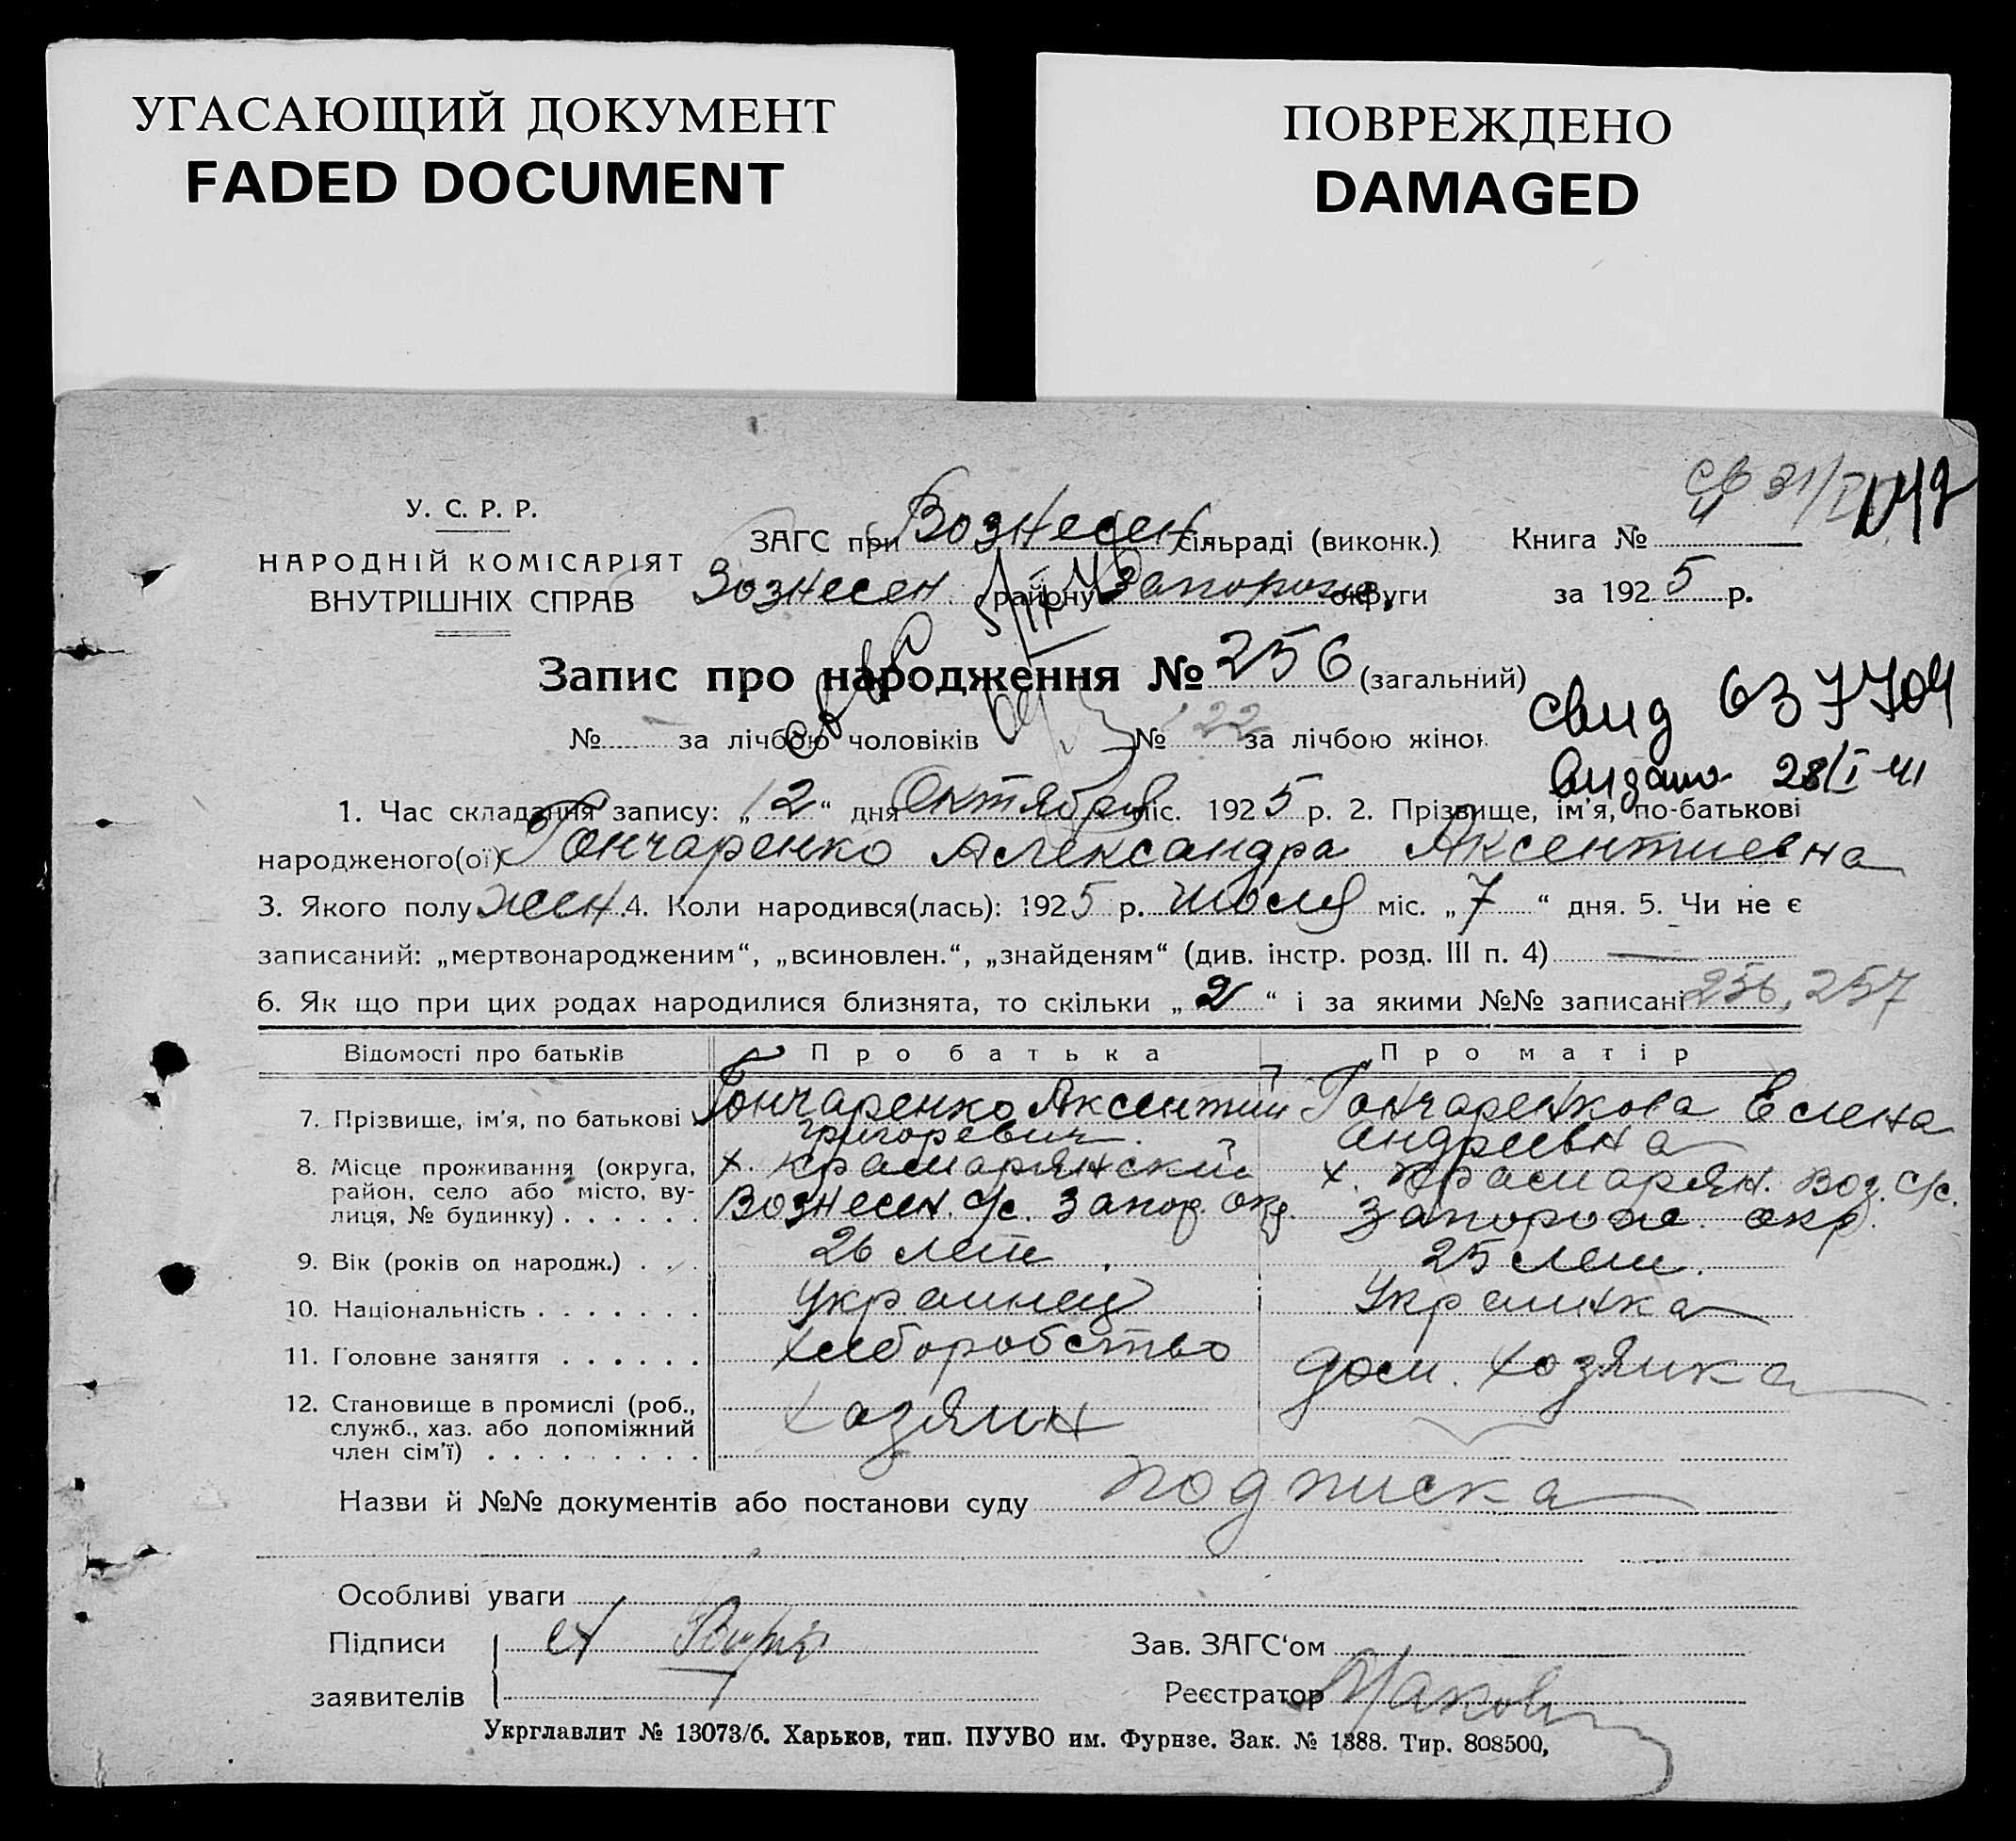 УГАСАЮЩИЙ ДОКУМЕНТ
FADED DOCUMENT
ПОВРЕЖДЕНО
DAMAGED
У. С. Р. Р.
НАРОДНІЙ КОМІСАРІЯТ
ВНУТРІШНІХ СПРАВ
ЗАГС при Вознесен. сільраді (виконк.)
Вознесен. району Запорож. округи
Книга №
за 1925 р.
св 31/
Запис про народження № 256 (загальний)
№ за лічбою чоловіків № 122 за лічбою жінок
свид 637704
видано 28/I-41
1. Час складання запису: „12“ дня Октября міс. 1925 р. 2. Прізвище, ім'я, по-батькові
народженого(ої) Гончаренко Александра Аксентиевна
3. Якого полу жен. 4. Коли народився(лась): 1925 р. июля міс. „7“ дня. 5. Чи не є
записаний: „мертвонародженим“, „всиновлен.“, „знайденям“ (див. інстр. розд. III п. 4) —
6. Як що при цих родах народилися близнята, то скільки „2“ і за якими №№ записані 256, 257
Відомості про батьків Про батька Про матір
7. Прізвище, ім'я, по батькові Гончаренко Аксентий Григоревич. Гончаренкова Елена Андреевна
8. Місце проживання (округа, район, село або місто, вулиця, № будинку) . . . . . . х. Крамарянский Вознесен. с/с. Запор. окр. х. Крамарян. Воз. с/с. Запорож. окр.
9. Вік (років од народж.) . . . 26 лет. 25 лет.
10. Національність . . . . . . . Украинец Украинка
11. Головне заняття . . . . . . Хлеборобство дом. хозяйка
12. Становище в промислі (роб., служб., хаз. або допоміжний член сім'ї) . . . . . . . . . Хазяин
Назви й №№ документів або постанови суду подписка
Особливі уваги
Підписи
заявителів
Зав. ЗАГС'ом
Реєстратор
Укрглавлит № 13073/б. Харьков, тип. ПУУВО им. Фурнзе. Зак. № 1388. Тир. 808500,